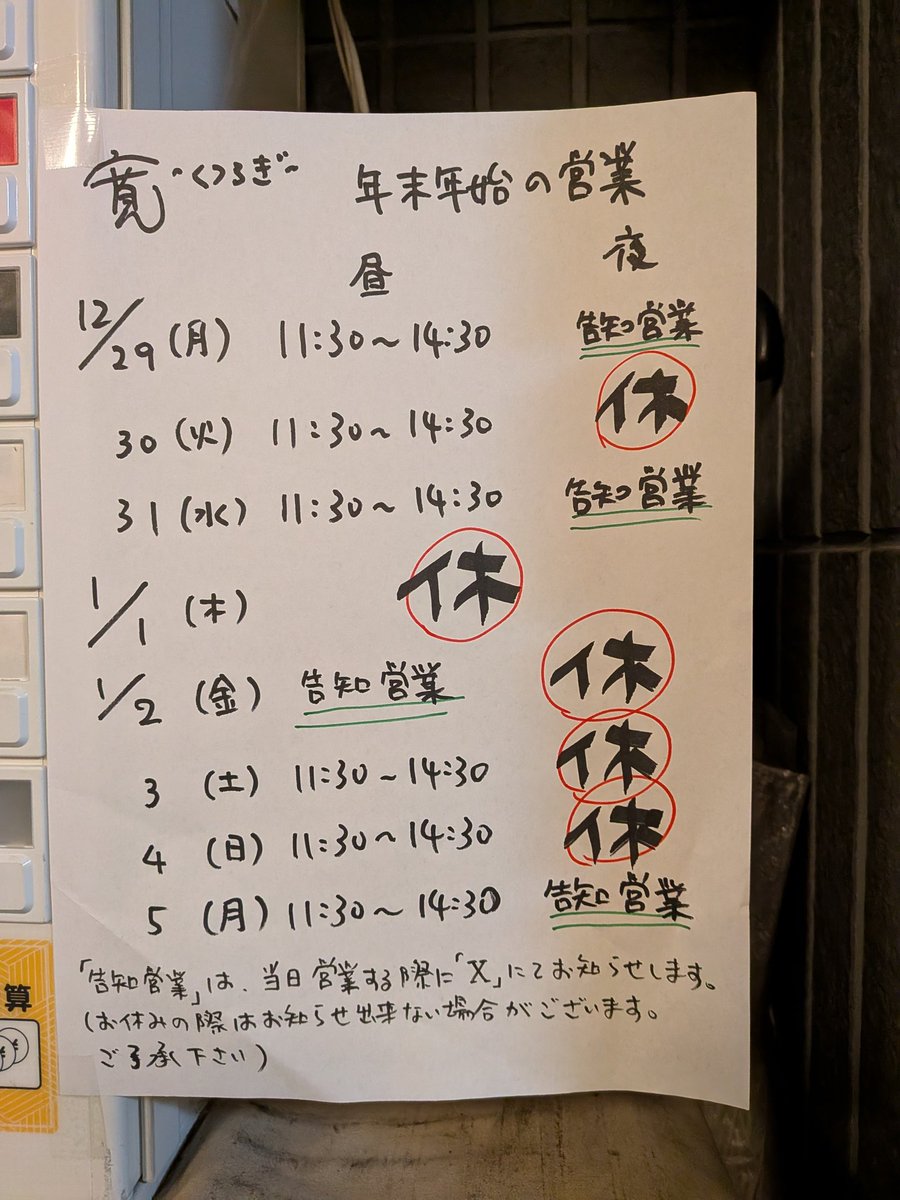 寛 ~くつろぎ~ 年末年始の営業
昼 夜
12/29(月) 11:30~14:30 告知営業
30(火) 11:30~14:30 休
31(水) 11:30~14:30 告知営業
1/1(木) 休
1/2(金) 告知営業 休
3(土) 11:30~14:30 休
4(日) 11:30~14:30 休
5(月) 11:30~14:30 告知営業
「告知営業」は、当日営業する際に「X」にてお知らせします。
(お休みの際はお知らせ出来ない場合がございます。
ご了承下さい)
算